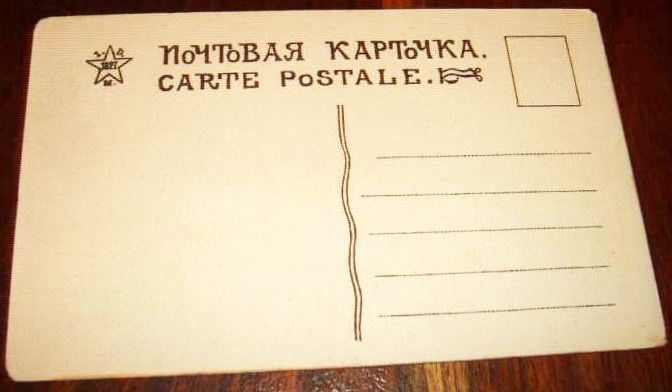 ПОЧТОВАЯ КАРТОЧКА.
CARTE POSTALE.